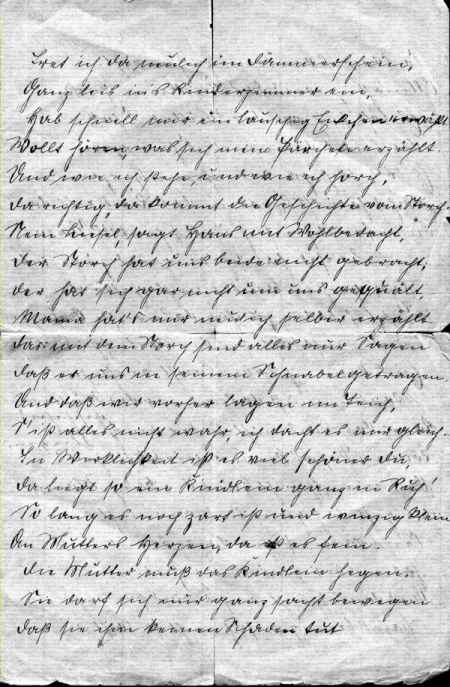 Tret ich da neulich im Dämmerschein,
Ganz leis ins Kinderzimmer ein,
Hab schnell mir ein lauschig Eckchen erwählt
Wollt hören, was sich mein Pärchen erzählt
Und wie ich stehe, und wie ich horch,
da richtig, da kommt die Geschichte vom Storch.
Nein Liesel, sagt Hans mit Wohlbedacht,
der Storch hat uns beide nicht gebracht,
der hat sich gar nicht um uns gequält,
Mama hat's mir neulich selber erzählt
das mit dem Storch sind alles nur Sagen
daß er uns in seinem Schnabel getragen.
Und daß wir vorher lagen im Teich,
S' ist alles nicht wahr, ich dacht es mir gleich.
In Wirklichkeit ist es viel schöner du,
da liegt so ein Kindlein ganz in Ruh!
So lang es noch zart ist und winzig klein
An Mutters Herzen, da ist es fein.
die Mutter muß das Kindlein hegen.
Sie darf sich nur ganz sacht bewegen
daß sie ihm keinen Schaden tut